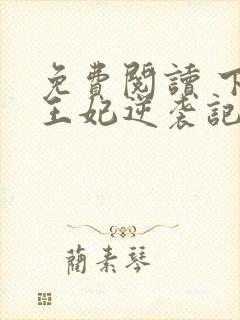 免費閱讀 下
王妃逆袭記
藺素琴